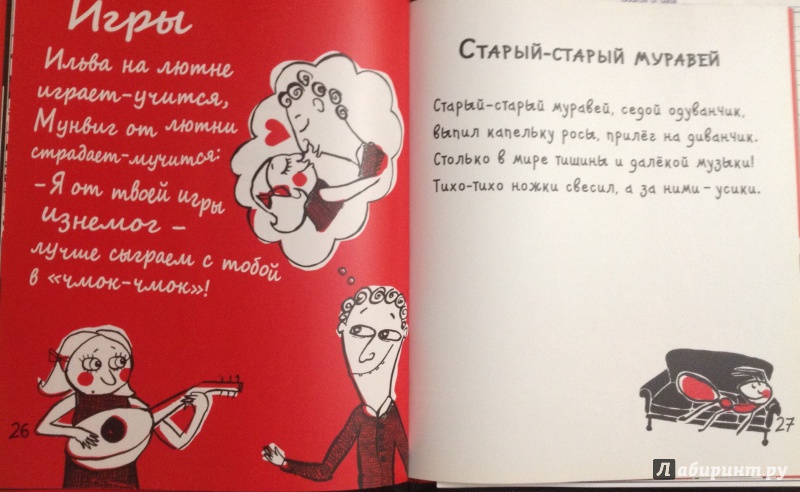 Игры
Ильва на лютне
играет-учится,
Мунвиг от лютни
страдает-мучится:
-Я от твоей игры
изнемог -
лучше сыграем с тобой
в «чмок-чмок»!
26
Старый-старый муравей
Старый-старый муравей, седой одуванчик,
выпил капельку росы, прилёг на диванчик.
Столько в мире тишины и далёкой музыки!
Тихо-тихо ножки свесил, а за ними – усики.
27
Лабиринт.ру